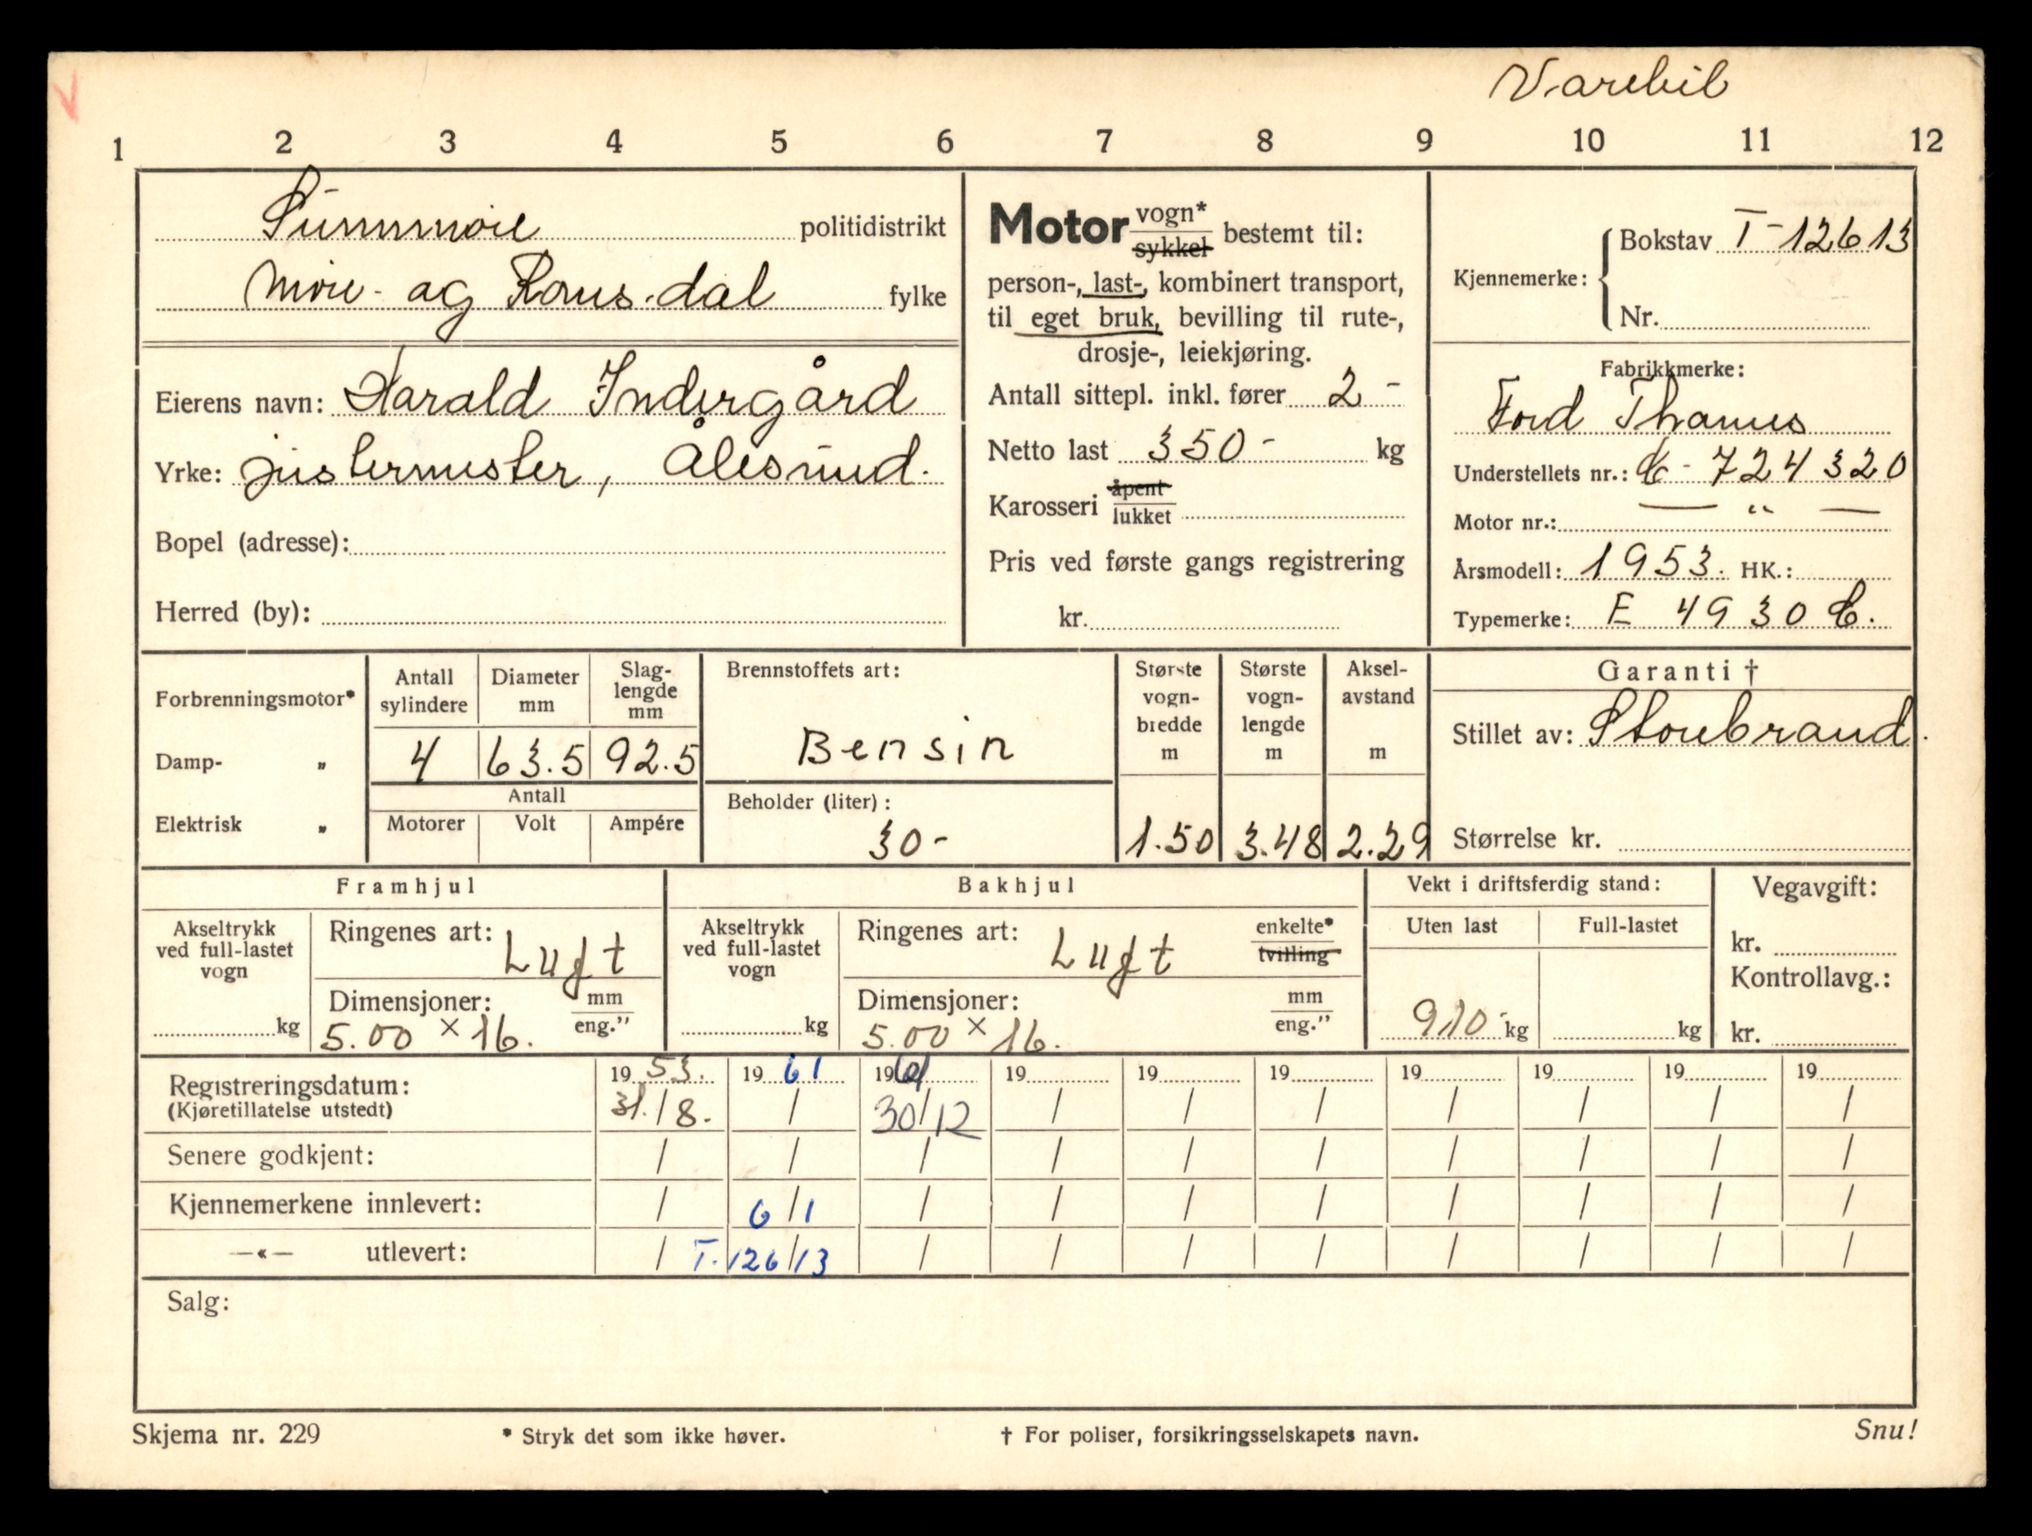 Varebil
1 2 3 4 5 6 7 8 9 10 11 12
Sunnmøre politidistrikt
Møre og Romsdal fylke
Eierens navn: Harald Indergård
Yrke: justermester, Ålesund.
Bopel (adresse):
Herred (by):
Motor vogn* sykkel bestemt til:
person-, last-, kombinert transport,
til eget bruk, bevilling til rute-,
drosje-, leiekjøring.
Antall sittepl. inkl. fører 2 -
Netto last 350 - kg
Karosseri åpent lukket
Pris ved første gangs registrering
kr.
Kjennemerke: Bokstav T-12613
Nr.
Fabrikkmerke:
Ford Thames
Understellets nr.: C - 724320
Motor nr.: — " —
Årsmodell: 1953. HK.:
Typemerke: E 4930 C.
Forbrenningsmotor*
Damp- "
Elektrisk "
Antall sylindere
Diameter mm
Slag- lengde mm
4 63.5 92.5
Antall
Motorer Volt Ampére
Brennstoffets art:
Bensin
Beholder (liter):
30 -
Største vogn- bredde m
1.50
Største vogn- lengde m
3.48
Aksel- avstand m
2.29
Garanti †
Stillet av: Storebrand.
Størrelse kr.
Framhjul
Akseltrykk ved full-lastet vogn
kg
Ringenes art: Luft
Dimensjoner: mm eng."
5.00 × 16.
Bakhjul
Akseltrykk ved full-lastet vogn
kg
Ringenes art: Luft enkelte* tvilling
Dimensjoner: mm eng."
5.00 × 16.
Vekt i driftsferdig stand:
Uten last Full-lastet
910 - kg kg
Vegavgift:
kr.
Kontrollavg.:
kr.
Registreringsdatum: 19 53. 19 61 19 61 19 19 19 19 19 19 19
(Kjøretillatelse utstedt) 31. / 8. / 30/12 / / / / / / /
Senere godkjent: / / / / / / / / / /
Kjennemerkene innlevert: / 6 / 1 / / / / / / / /
—«— utlevert: / T. 126/13 / / / / / / / /
Salg:
Skjema nr. 229 * Stryk det som ikke høver. † For poliser, forsikringsselskapets navn. Snu!